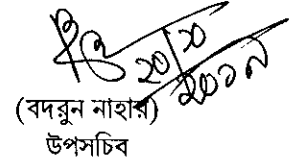 ২০/১০
২০১৭
(বদরুন নাহার)
উপসচিব